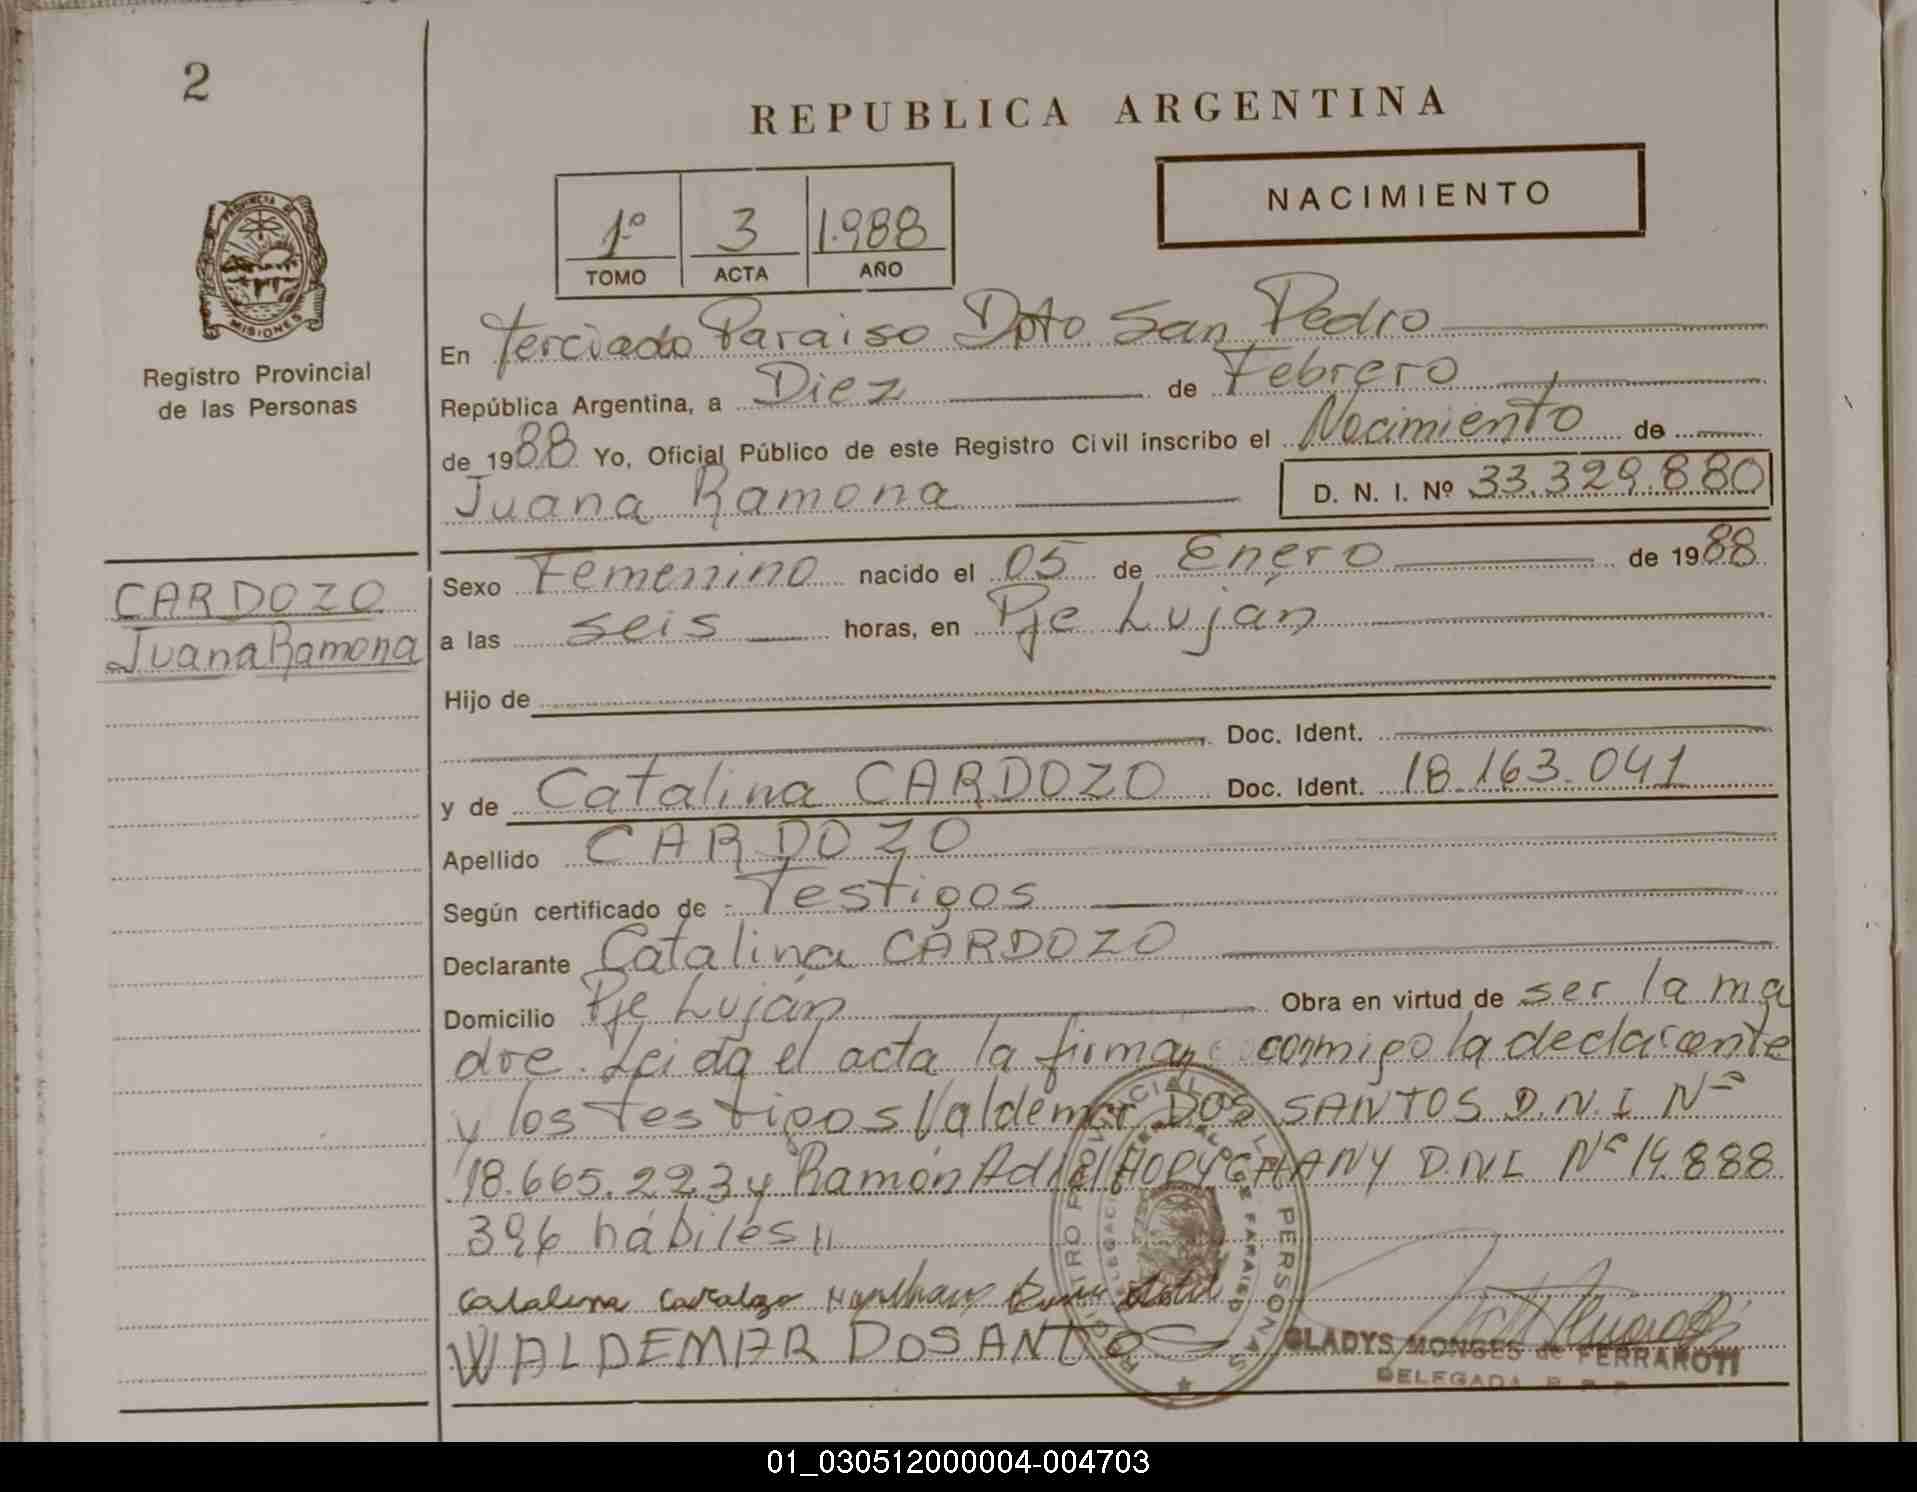 2
REPUBLICA ARGENTINA
NACIMIENTO
1º 3 1.988
TOMO ACTA AÑO
PROVINCIA DE
MISIONES
Registro Provincial
de las Personas
En Terciado Paraiso Dpto San Pedro
República Argentina, a Diez de Febrero
de 1988 Yo, Oficial Público de este Registro Civil inscribo el Nacimiento de
Juana Ramona D. N. I. Nº 33.329.880
CARDOZO
Juana Ramona
Sexo Femenino nacido el 05 de Enero de 1988
a las seis horas, en Pje Luján
Hijo de
Doc. Ident.
y de Catalina CARDOZO Doc. Ident. 18.163.041
Apellido CARDOZO
Según certificado de Testigos
Declarante Catalina CARDOZO
Domicilio Pje Luján Obra en virtud de ser la ma
dre. Leida el acta la firman conmigo la declarante
y los Testigos Valdemar DOS SANTOS D.N.I Nº
18.665.223 y Ramón D.N.I Nº 14.888
396 hábiles
Catalina
WALDEMAR DOSANTO
REGISTRO PROVINCIAL DE LAS PERSONAS
GLADYS MONGES de FERRAROTI
DELEGADA R. P. P.
01_030512000004-004703